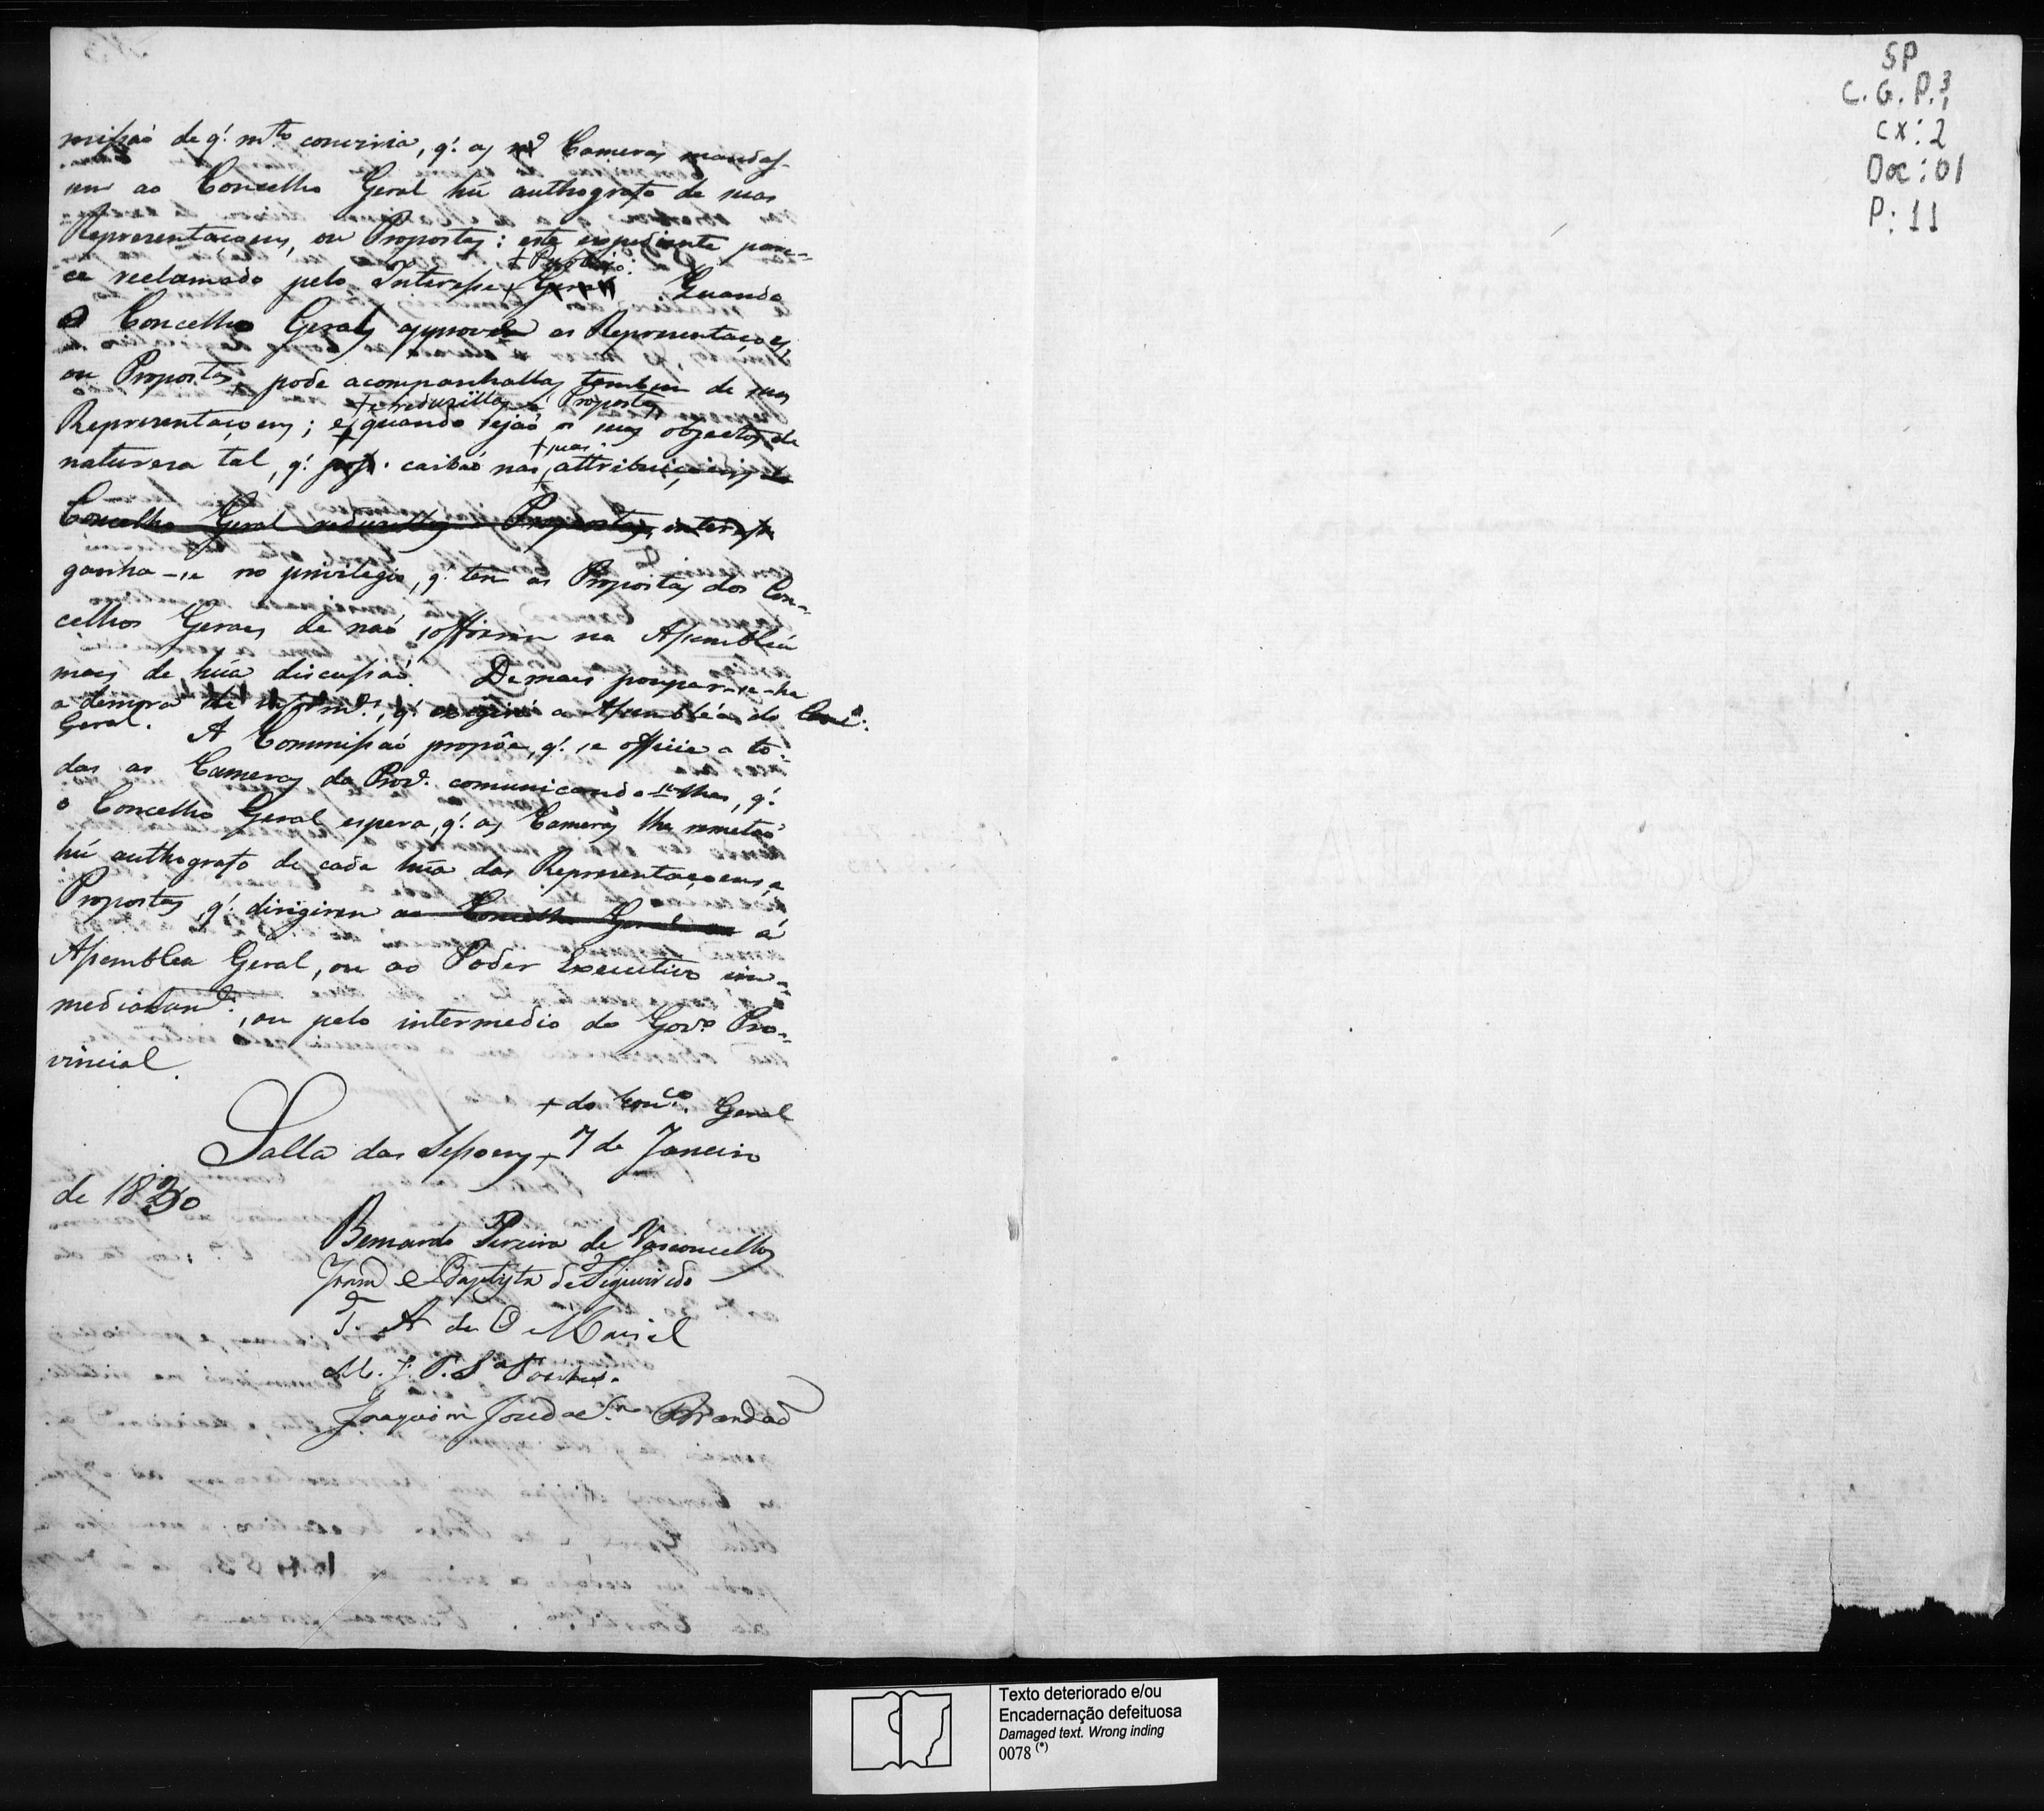 missaõ de q'. m.to conviria, q'. as Cameras mandas-
sem ao Concelho Geral hũ authografo de suas
Representaçoens, ou Propostas: este expediente pare-
+ Publico:
ce reclamado pelo Interesse + Geral Quando
o Concelho Geral approve as Representaçoes,
ou Propostas, pode acompanhallas tambem de suas
+ e reduzillas á Propostas
Representaçoens; e, quando sejaõ os seus objectos de
+ suas
naturesa tal, q'. caibaõ nas attribuiçoens do
Concelho Geral reduzillas á Propostas, interesse
ganha-se no privilegio, q'. tem as Propostas dos Con-
celhos Geraes de naõ soffrerem na Assembléa
mais de hũa discussaõ. Demais poupar-se-ha
a demora de inform.es, q'. exigirá a Assembléa do Conc.o
Geral. A Commissaõ propõe, q'. se officie a to-
das as Cameras da Prov.a comunicando-se-lhes, q'.
o Concelho Geral espera, q'. as Cameras lhe remetaõ
hũ authografo de cada hũa das Representaçoens, e
Propostas, q'. dirigirem ao Concelho Geral ou á
Assemblea Geral, ou ao Poder Executivo im-
mediatam.e, ou pelo intermedio do Gov.o Pro-
vincial.
+ do Con.co Geral
Salla das Sessoens + 7 de Janeiro
de 1830
Bernardo Pereira de Vasconcellos
Baptista de Figueiredo
T. A de O Maciel
M. J. P. S.a Pontes.
Joaquim José da S.a Brandaõ
SP
C. G. P. 3,
CX: 2
Doc: 01
P: 11
Texto deteriorado e/ou
Encadernação defeituosa
Damaged text. Wrong inding
0078 (*)